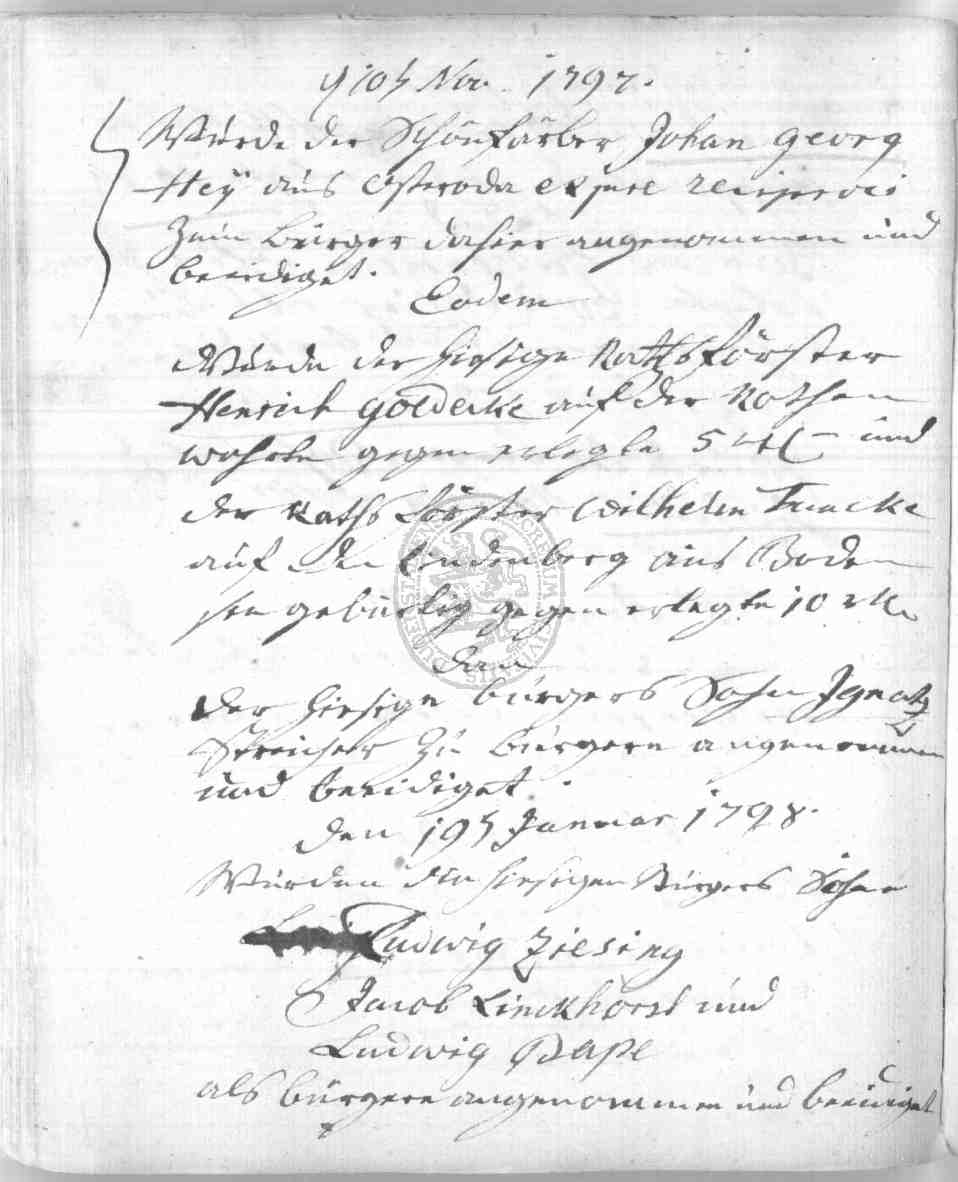 d 10t Nov. 1797.
Wurde der Schönfärber Johan Georg
Heÿ aus Osteroda ex jure reciproci
zum bürger dahier angenommen und
beeidiget.
Eodem
Wurde der hiesige Rathsförster
Henrich Goldecke auf der Rothen
warte gegen erlegte 5 rtl und
der Raths förster Wilhelm Funcke
auf den Lindenberg aus Boden
sen gebürtig gegen erlegte 10 rtl
dan
der hiesige bürgers Sohn Ignatz
Streicher zu bürgern angenommen
und beeidiget.
den 19t Januar 1798.
Wurden die hiesigen Bürgers Söhne
Ludwig Ziesing
Jacob Linckhorst und
Ludwig Pape
als bürgere angenommen und beeidiget